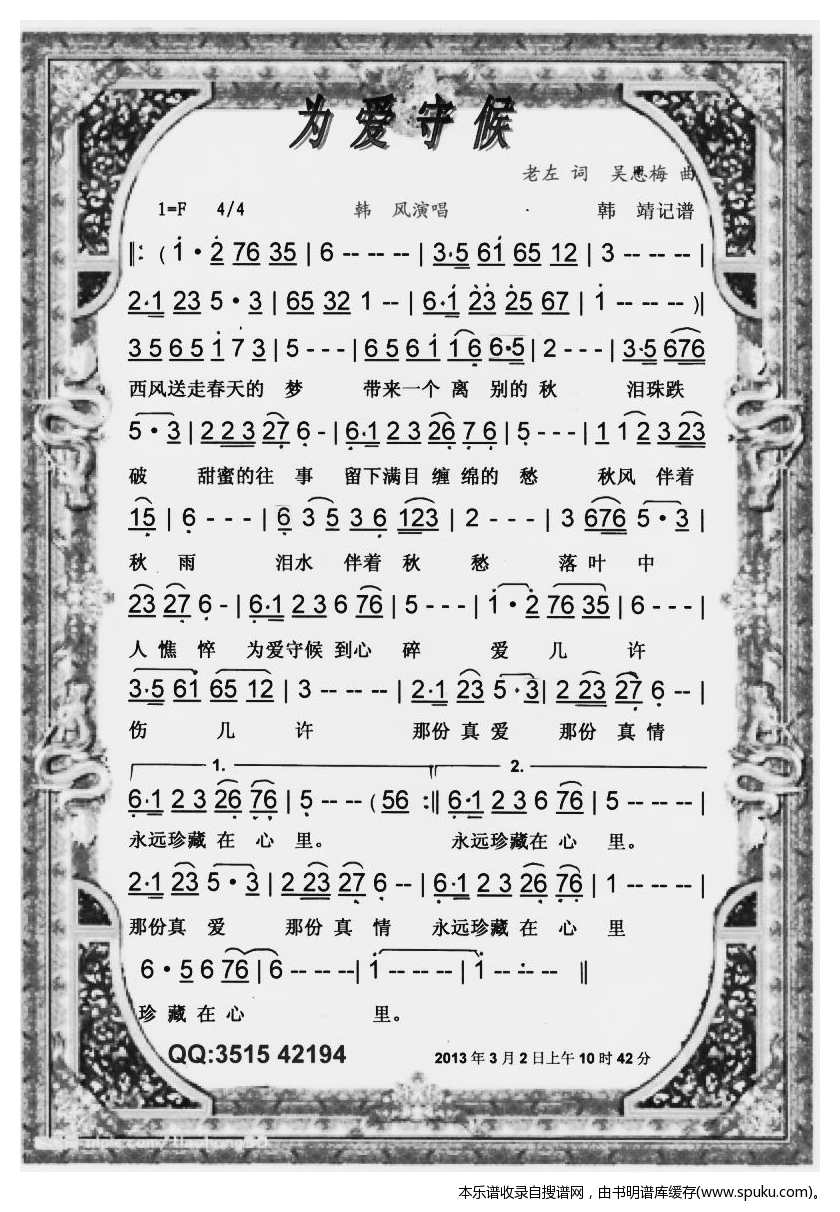 为爱守候
老左 词 吴恩梅 曲
1=F 4/4 韩 风演唱 韩 靖记谱
‖: ( 1̇ · 2̇ 76 35 | 6 -- -- -- | 3·5 61̇ 65 12 | 3 -- -- -- |
2·1 23 5 · 3 | 65 32 1 -- | 6·1̇ 2̇3̇ 2̇5 67 | 1̇ -- -- -- )|
3 5 6 5 1̇ 7 3 | 5 - - - | 6 5 6 1̇ 1̇ 6 6·5 | 2 - - - | 3·5 676
西风送走春天的 梦 带来一个 离 别的 秋 泪珠跌
5 · 3 | 2 2 3 27̣ 6̣ - | 6̣·1 2 3 26̣ 7̣ 6̣ | 5̣ - - - | 1 1 2 3 23
破 甜蜜的往 事 留下满目 缠 绵的 愁 秋风 伴着
15̣ | 6̣ - - - | 6̣ 3 5 3 6̣ 123 | 2 - - - | 3 676 5 · 3 |
秋 雨 泪水 伴着 秋 愁 落 叶 中
23 27̣ 6̣ - | 6̣·1 2 3 6 76 | 5 - - - | 1̇ · 2̇ 76 35 | 6 - - - |
人 憔 悴 为爱守候 到心 碎 爱 几 许
3·5 61̇ 65 12 | 3 -- -- -- | 2·1 23 5 · 3| 2 23 27̣ 6̣ -- |
伤 几 许 那份 真 爱 那份 真 情
1. 2.
6̣·1 2 3 26̣ 7̣6̣ | 5̣ -- -- ( 56 :‖ 6̣·1 2 3 6 76 | 5 -- -- -- |
永远珍藏 在 心 里。 永远珍藏在 心 里。
2·1 23 5 · 3 | 2 23 27̣ 6̣ -- | 6̣·1 2 3 26̣ 7̣6̣ | 1 -- -- -- |
那份真 爱 那份 真 情 永远珍藏 在 心 里
6 · 5 6 76 | 6 -- -- --| 1̇ -- -- -- | 1̇ -- -- -- ‖
珍 藏 在 心 里。
QQ:3515 42194 2013 年 3 月 2 日上午 10 时 42 分
本乐谱收录自搜谱网，由书明谱库缓存(www.spuku.com)。